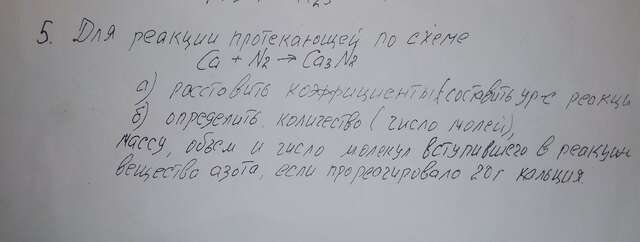 5. Для реакции протекающей по схеме
Ca + N2 → Ca3N2
а) расставить коэффициенты (составить ур-е реакции
б) определить количество (число молей),
массу, объем и число молекул вступившего в реакцию
вещество азота, если прореагировало 20г кальция.